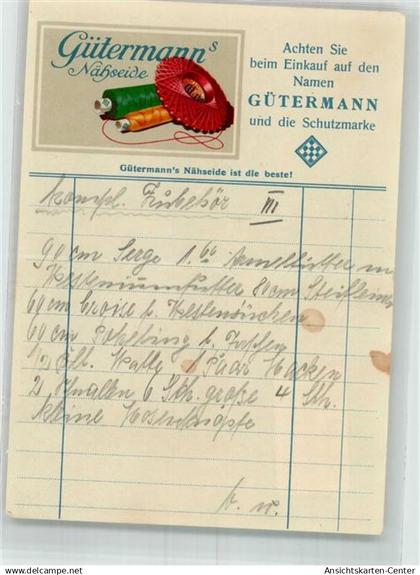 Gütermann's
Nähseide
Achten Sie
beim Einkauf auf den
Namen
GÜTERMANN
und die Schutzmarke
Gütermann's Nähseide ist die beste!
kompl. Zubehör III
90 cm Serge 1.60 Ärmelfutter
Westenrumfutter 80 cm Steifleinen
60 cm Croise f. Westenrücken
60 cm f. Taschen
Watte 1 Paar Hacken
2 Schnallen 6 Stk. große 4 Stk.
kleine Hosenknöpfe
b. w.
www.ansichtskarten-center.de
Ansichtskarten-Center